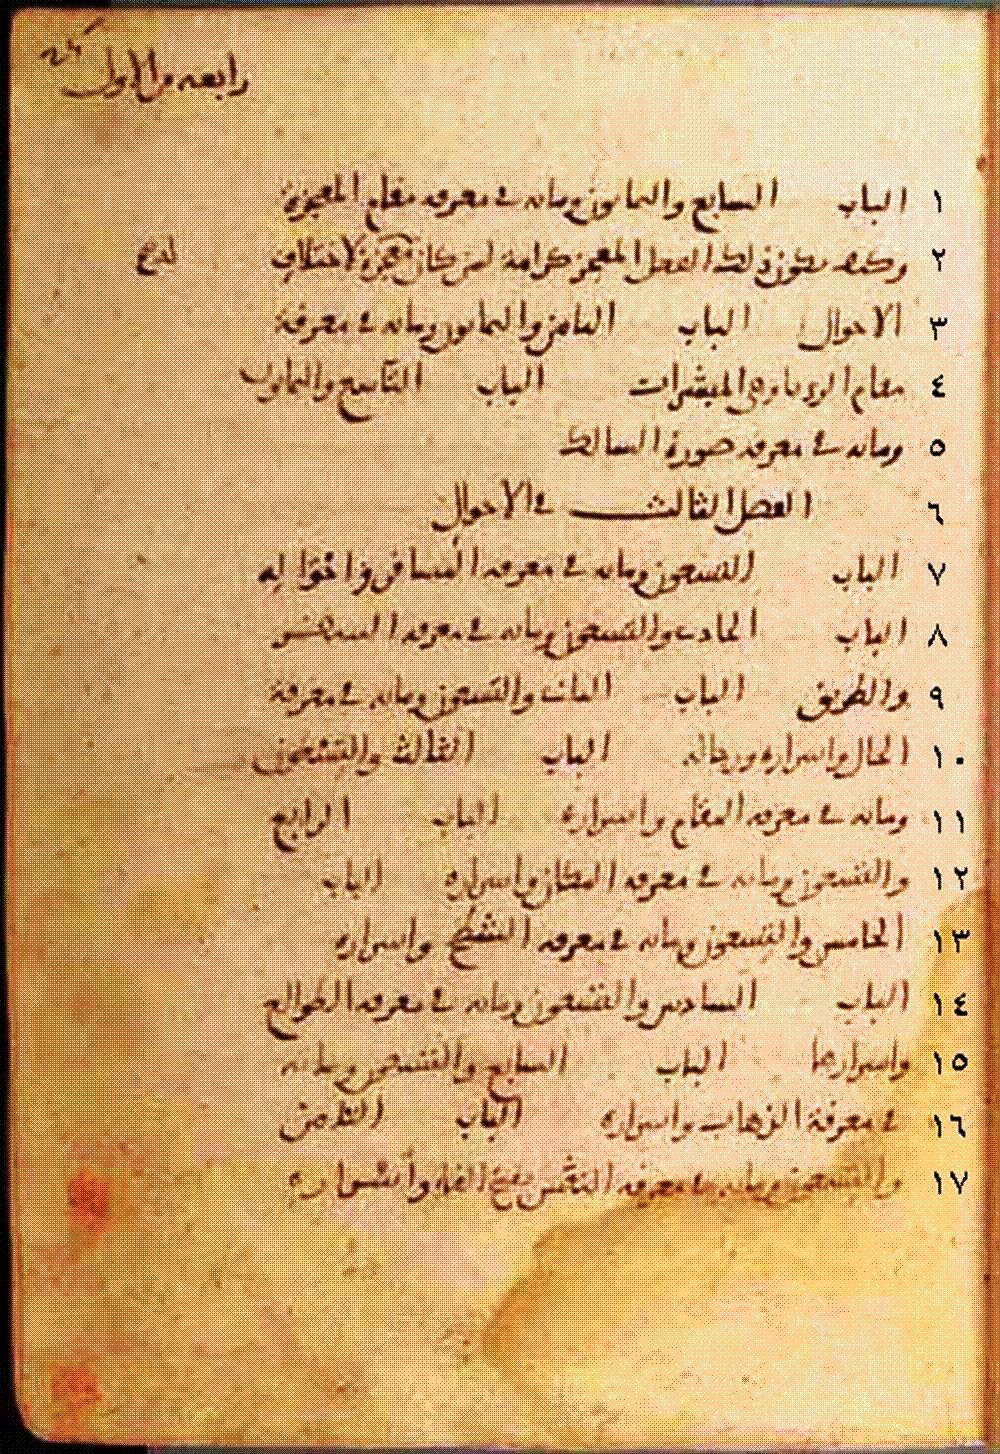 رابعه من الاول
١ الباب السابع والثمانون ومائه في معرفه مقام المعجزة
٢ وكيف يكون ذلك الفعل المعجز كرامة لمن كان معجزة لاختلاف
٣ الاحوال الباب الثامن والثمانون ومائه في معرفة
٤ مقام الرويا وهي المبشرات الباب التاسع والثمانون
٥ ومائه في معرفه صورة السالك
٦ الفصل الثالث في الاحوال
٧ الباب التسعون ومائه في معرفه المسافر واحواله
٨ الباب الحادي والتسعون ومائه في معرفه السفر
٩ والطريق الباب الثاني والتسعون ومائه في معرفة
١٠ الحال واسراره ورجاله الباب الثالث والتسعون
١١ ومائه في معرفه المقام واسراره الباب الرابع
١٢ والتسعون ومائه في معرفه المكان واسراره الباب
١٣ الخامس والتسعون ومائه في معرفه الشطح واسراره
١٤ الباب السادس والتسعون ومائه في معرفه الطوالع
١٥ واسرارها الباب السابع والتسعون ومائه
١٦ في معرفة الذهاب واسراره الباب الثامن
١٧ والتسعون ومائه في معرفه النفس بفتح الفاء واسراره